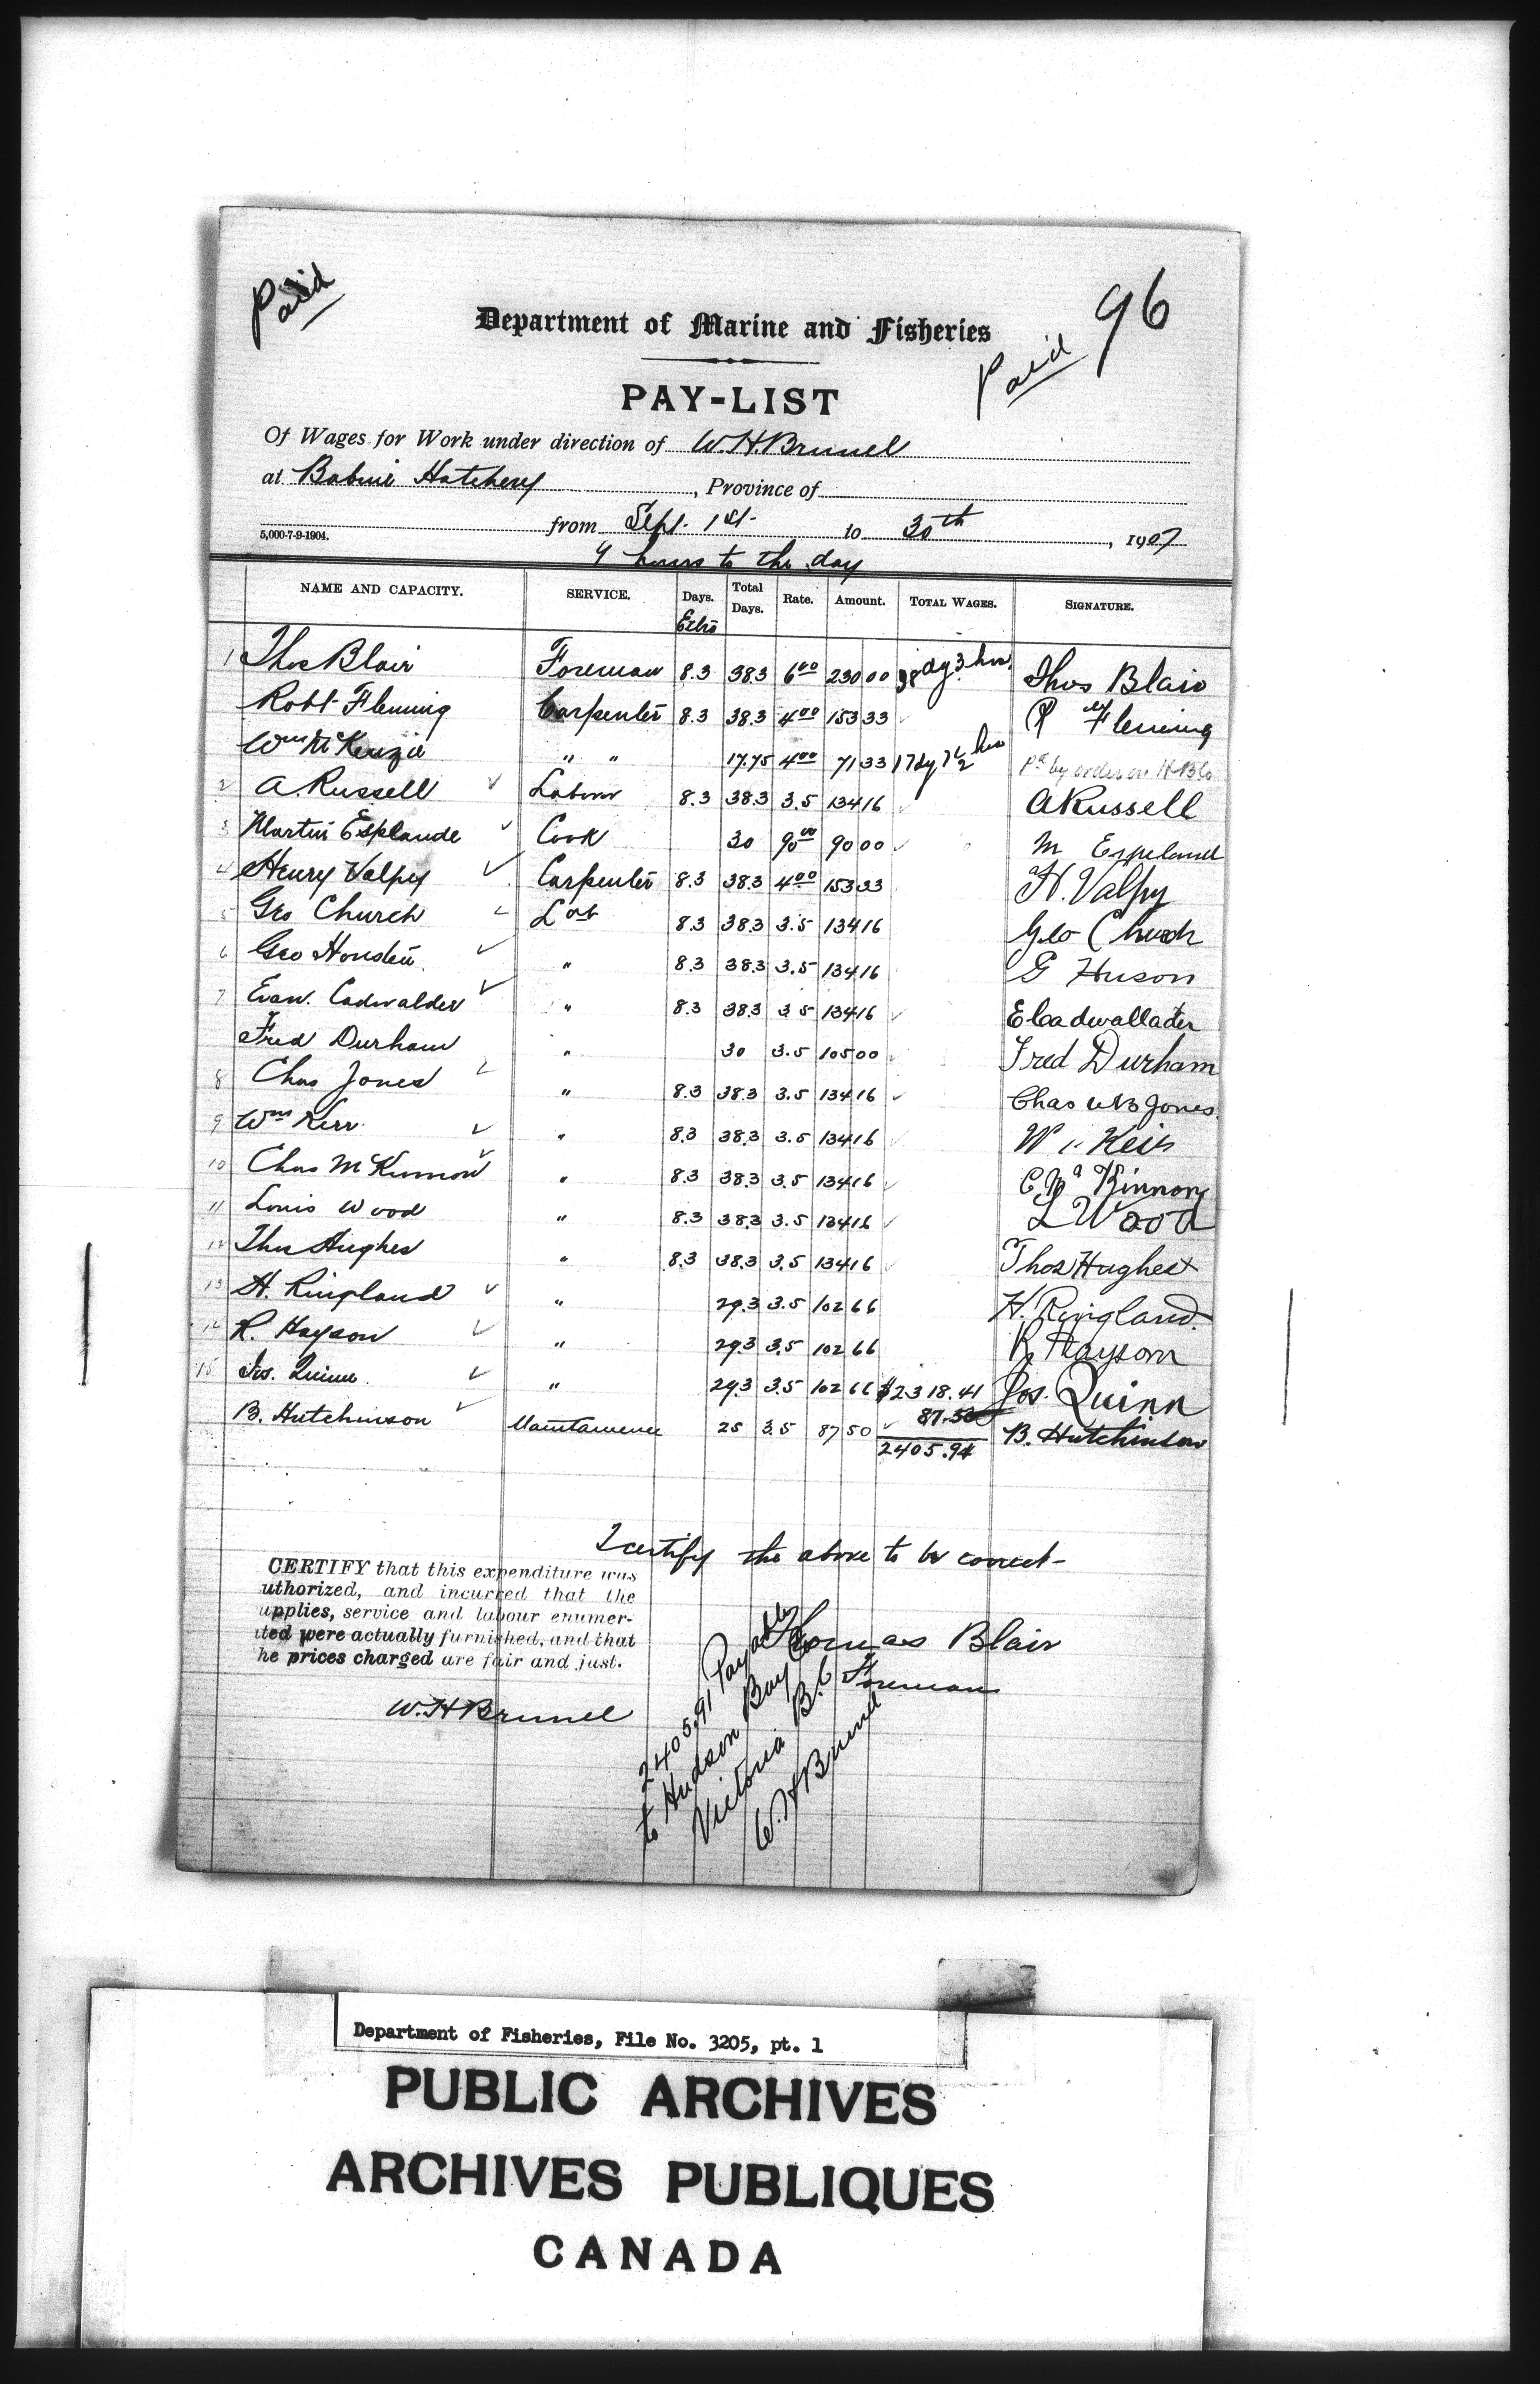 Paid
96
Department of Marine and Fisheries
Paid
PAY-LIST
Of Wages for Work under direction of W. H. Brunel
at Babine Hatchery, Province of
from Sept. 1st to 30th, 1907
5,000-7-9-1904.
9 hours to the day
NAME AND CAPACITY. SERVICE. Days. Total Days. Rate. Amount. TOTAL WAGES. SIGNATURE.
Extra
1 Thos Blair Foreman 8.3 38.3 6 00 230 00 38 dy 3 hrs. Thos Blair
Robt. Fleming Carpenter 8.3 38.3 4 00 153 33 R Fleming
Wm McKenzie " " 17.75 4 00 71 33 17 dy 7 1/2 hrs pd by order on H B Co
2 A. Russell Labour 8.3 38.3 3.5 134 16 A Russell
3 Martin Esplaude Cook 30 90 00 90 00 M Espeland
4 Henry Valpy Carpenter 8.3 38.3 4 00 153 33 H. Valpy
5 Geo Church Lab 8.3 38.3 3.5 134 16 Geo Church
6 Geo Houston " 8.3 38.3 3.5 134 16 G Huson
7 Evan. Cadwalder " 8.3 38.3 3 5 134 16 E Cadwallader
Fred Durham " 30 3.5 105 00 Fred Durham
8 Chas Jones " 8.3 38.3 3.5 134 16 Chas Jones.
9 Wm Kerr " 8.3 38.3 3.5 134 16 W Keir
10 Chas McKinnon " 8.3 38.3 3.5 134 16 C Mc Kinnon
11 Louis Wood " 8.3 38.3 3.5 134 16 L Wood
12 Thos Hughes " 8.3 38.3 3.5 134 16 Thos Hughes
13 H. Ringland " 29.3 3.5 102 66 H. Ringland.
14 R. Hayson " 29.3 3.5 102 66 R Haysom
15 Jos. Quinn " 29.3 3.5 102 66 $2318.41 Jos. Quinn
B. Hutchinson Maintamence 25 3.5 87 50 87.50 B. Hutchinson
2405.91
I certify the above to be correct-
CERTIFY that this expenditure was
uthorized, and incurred that the
upplies, service and labour enumer-
ited were actually furnished, and that
he prices charged are fair and just.
Thomas Blair
Foreman
W. H Brunel
2405.91 Payable
to Hudson Bay Co
Victoria B. C
W. H Brunel
Department of Fisheries, File No. 3205, pt. 1
PUBLIC ARCHIVES
ARCHIVES PUBLIQUES
CANADA